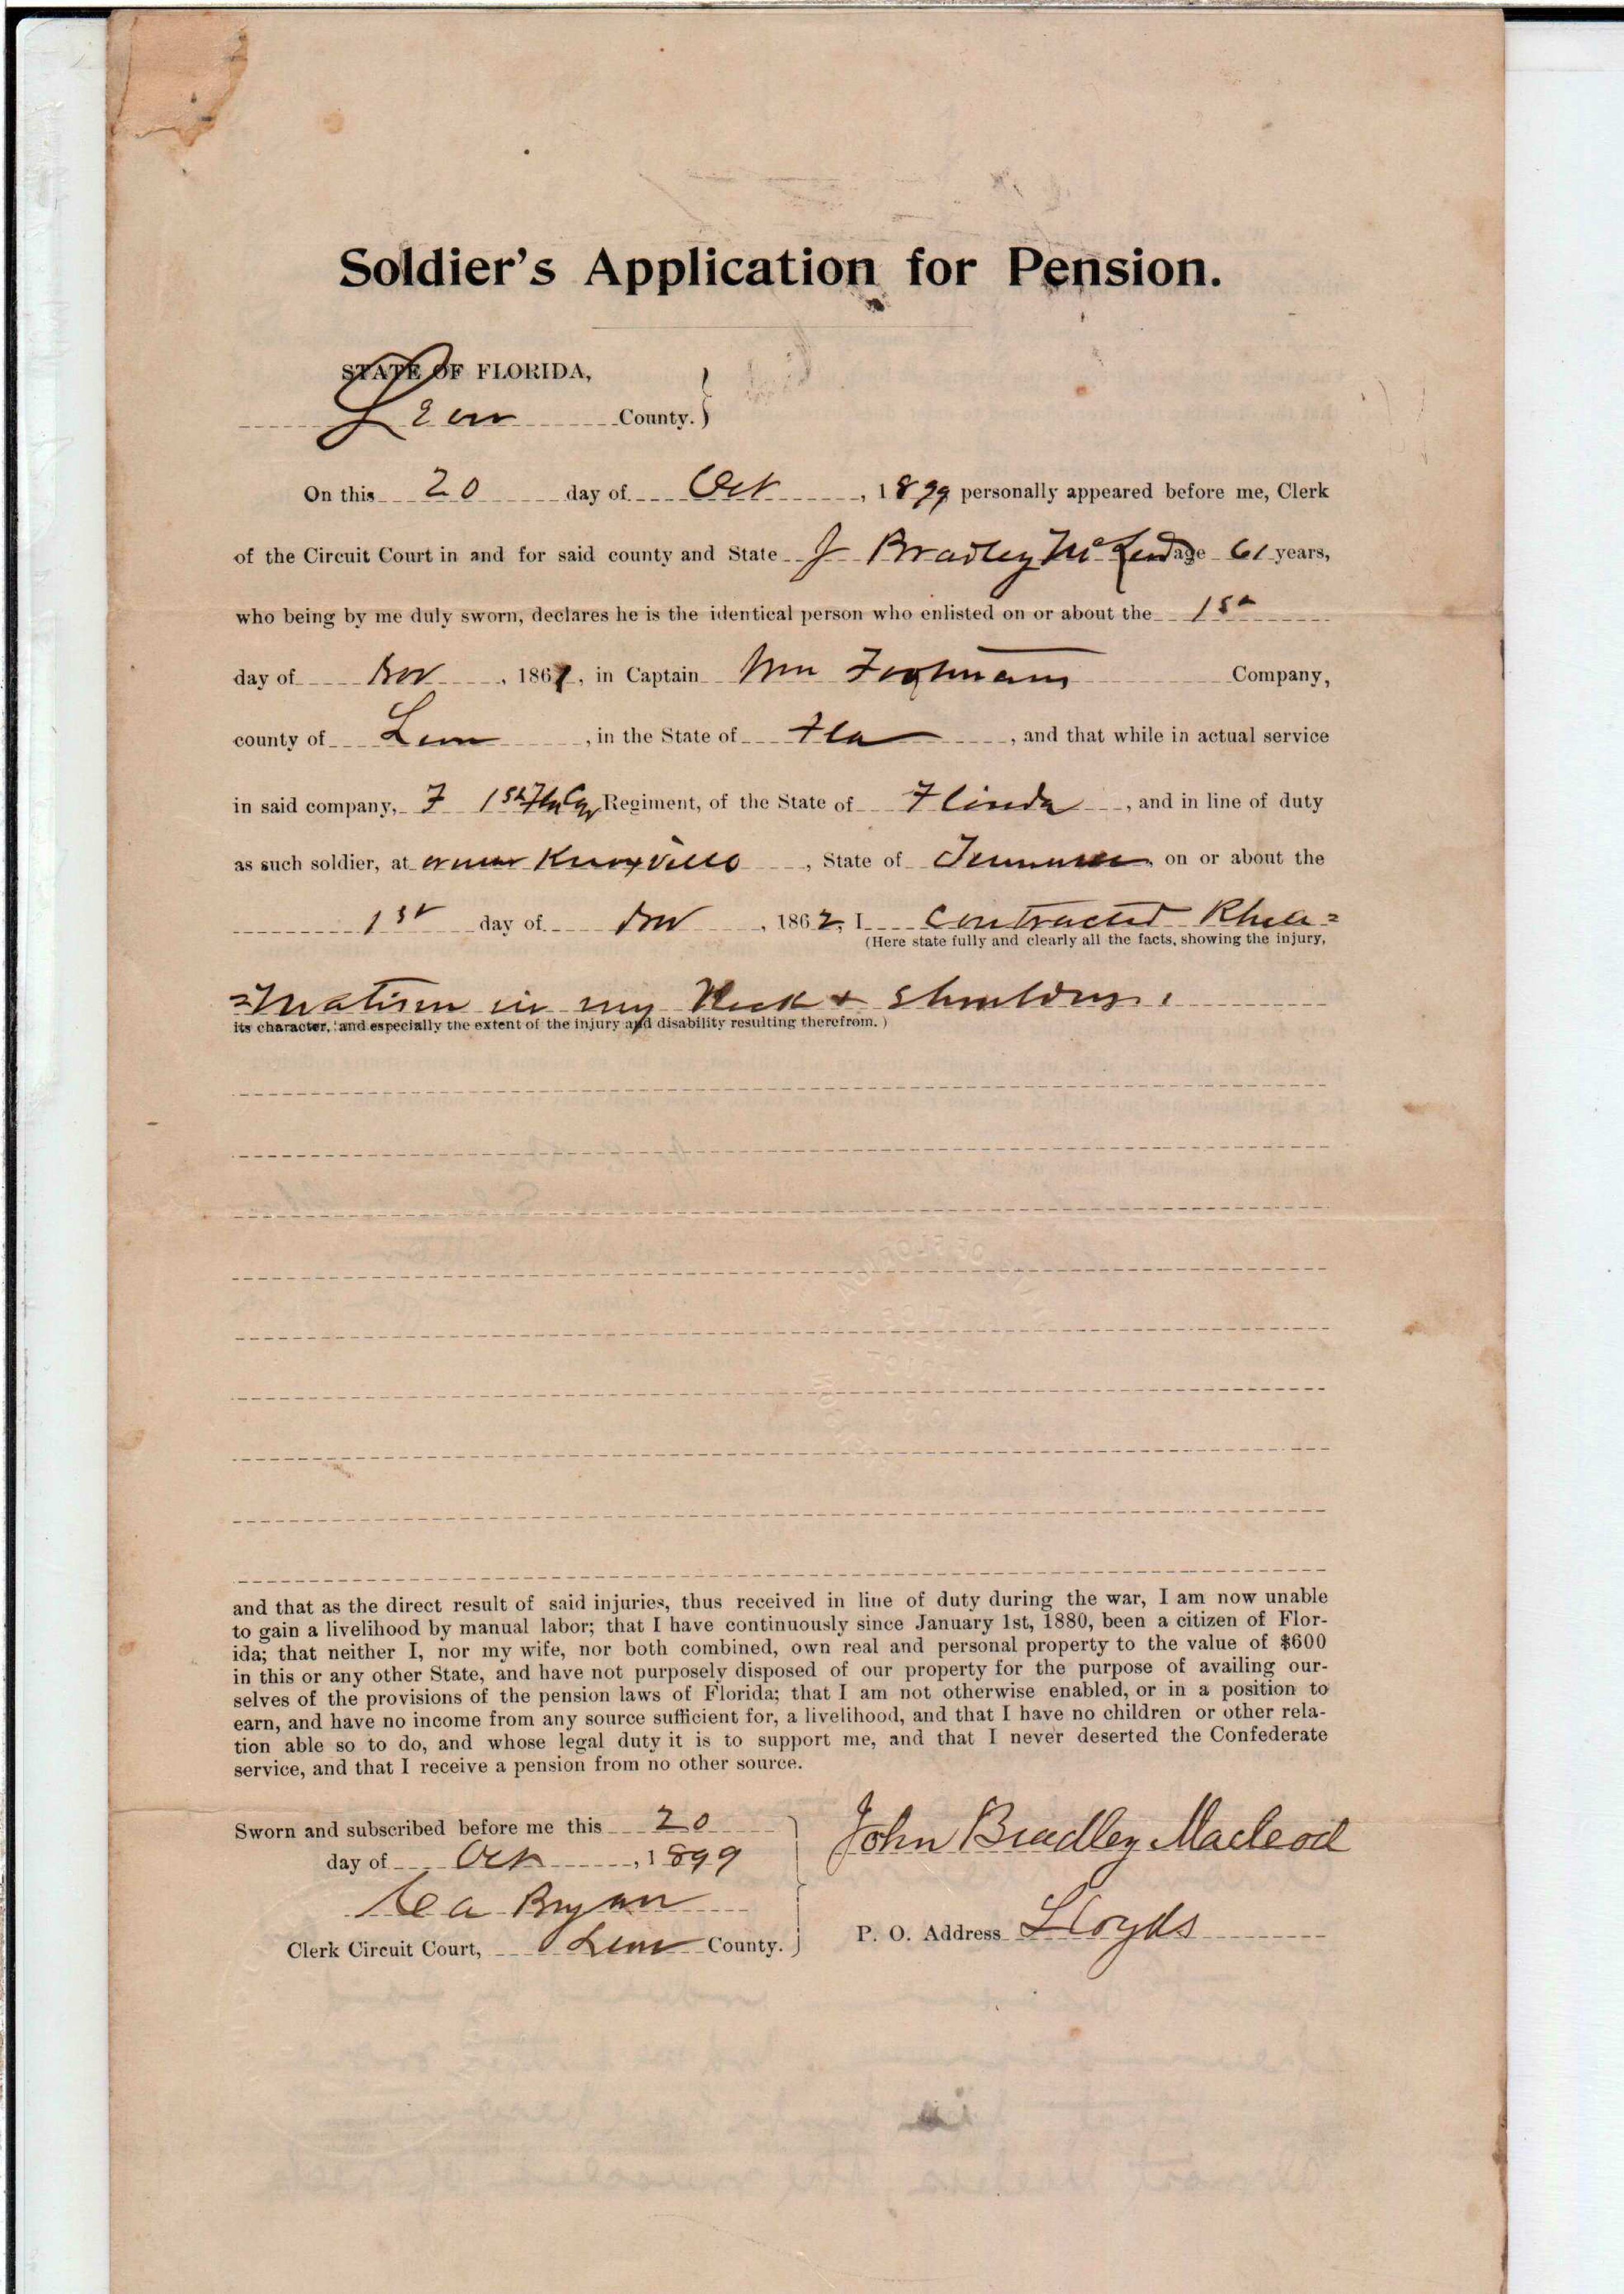 Soldier's Application for Pension.
STATE OF FLORIDA,
Leon County. }
On this 20 day of Oct, 1899 personally appeared before me, Clerk
of the Circuit Court in and for said county and State J Bradley McLeod age 61 years,
who being by me duly sworn, declares he is the identical person who enlisted on or about the 1st
day of Nov, 1861, in Captain Wm Footmans Company,
county of Leon, in the State of Fla, and that while in actual service
in said company, F 1st Fla Cav Regiment, of the State of Florida, and in line of duty
as such soldier, at or near Knoxville, State of Tennessee, on or about the
1st day of Nov, 1862, I contracted Rheu=
(Here state fully and clearly all the facts, showing the injury,
=matism in my Neck & Shoulders.
its character, and especially the extent of the injury and disability resulting therefrom.)
and that as the direct result of said injuries, thus received in line of duty during the war, I am now unable
to gain a livelihood by manual labor; that I have continuously since January 1st, 1880, been a citizen of Flor-
ida; that neither I, nor my wife, nor both combined, own real and personal property to the value of $600
in this or any other State, and have not purposely disposed of our property for the purpose of availing our-
selves of the provisions of the pension laws of Florida; that I am not otherwise enabled, or in a position to
earn, and have no income from any source sufficient for, a livelihood, and that I have no children or other rela-
tion able so to do, and whose legal duty it is to support me, and that I never deserted the Confederate
service, and that I receive a pension from no other source.
Sworn and subscribed before me this 20
day of Oct, 1899
John Bradley Macleod
Bryan
P. O. Address Lloyds
Clerk Circuit Court, Leon County.